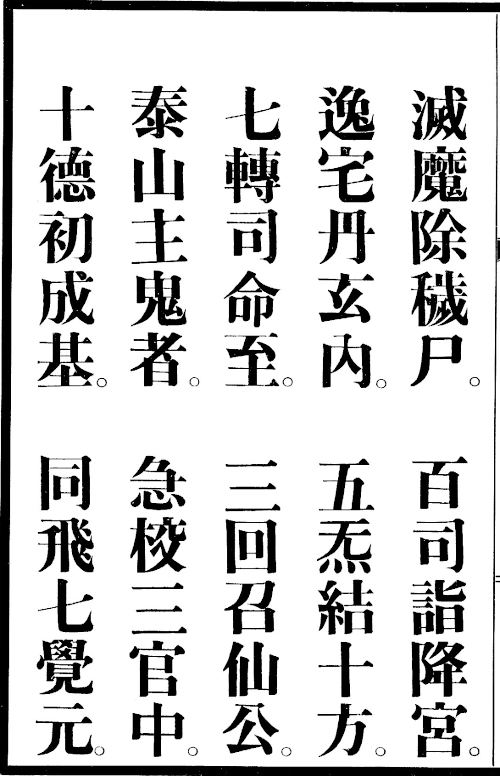 滅魔除穢尸。百司詣降宮。
逸宅丹玄內。五炁結十方。
七轉司命至。三回召仙公。
泰山主鬼者。急校三官中。
十德初成基。同飛七覺元。